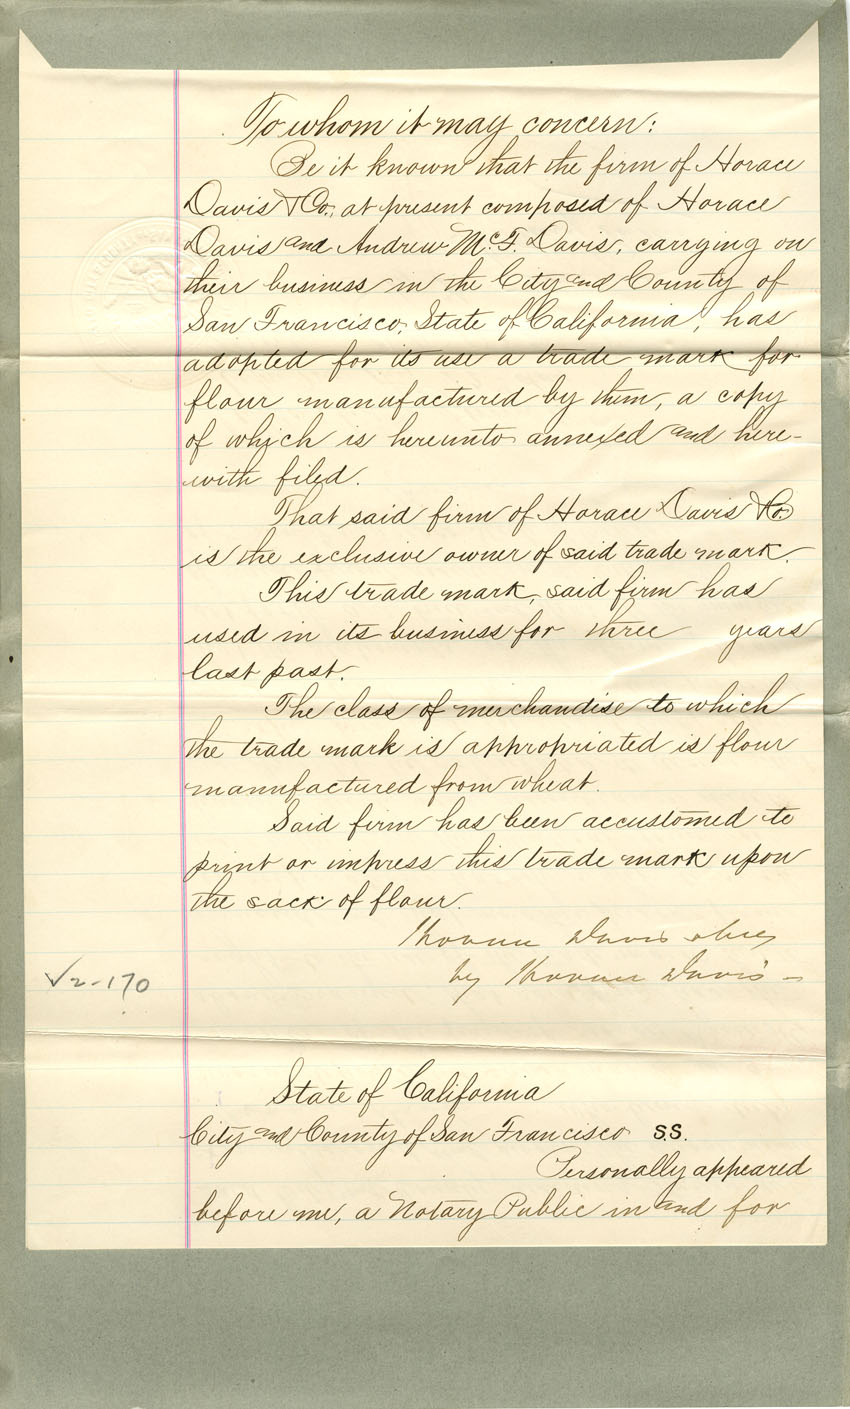 To whom it may concern:
Be it known that the firm of Horace
Davis & Co., at present composed of Horace
Davis and Andrew McF. Davis, carrying on
their business in the City and County of
San Francisco, State of California, has
adopted for its use a trade mark for
flour manufactured by them, a copy
of which is hereunto annexed and here-
with filed.
That said firm of Horace Davis & Co.
is the exclusive owner of said trade mark.
This trade mark, said firm has
used in its business for three years
last past.
The class of merchandise to which
the trade mark is appropriated is flour
manufactured from wheat.
Said firm has been accustomed to
print or impress this trade mark upon
the sack of flour.
Horace Davis & Co
by Horace Davis
√2-170
State of California
City and County of San Francisco S.S.
Personally appeared
before me, a Notary Public in and for